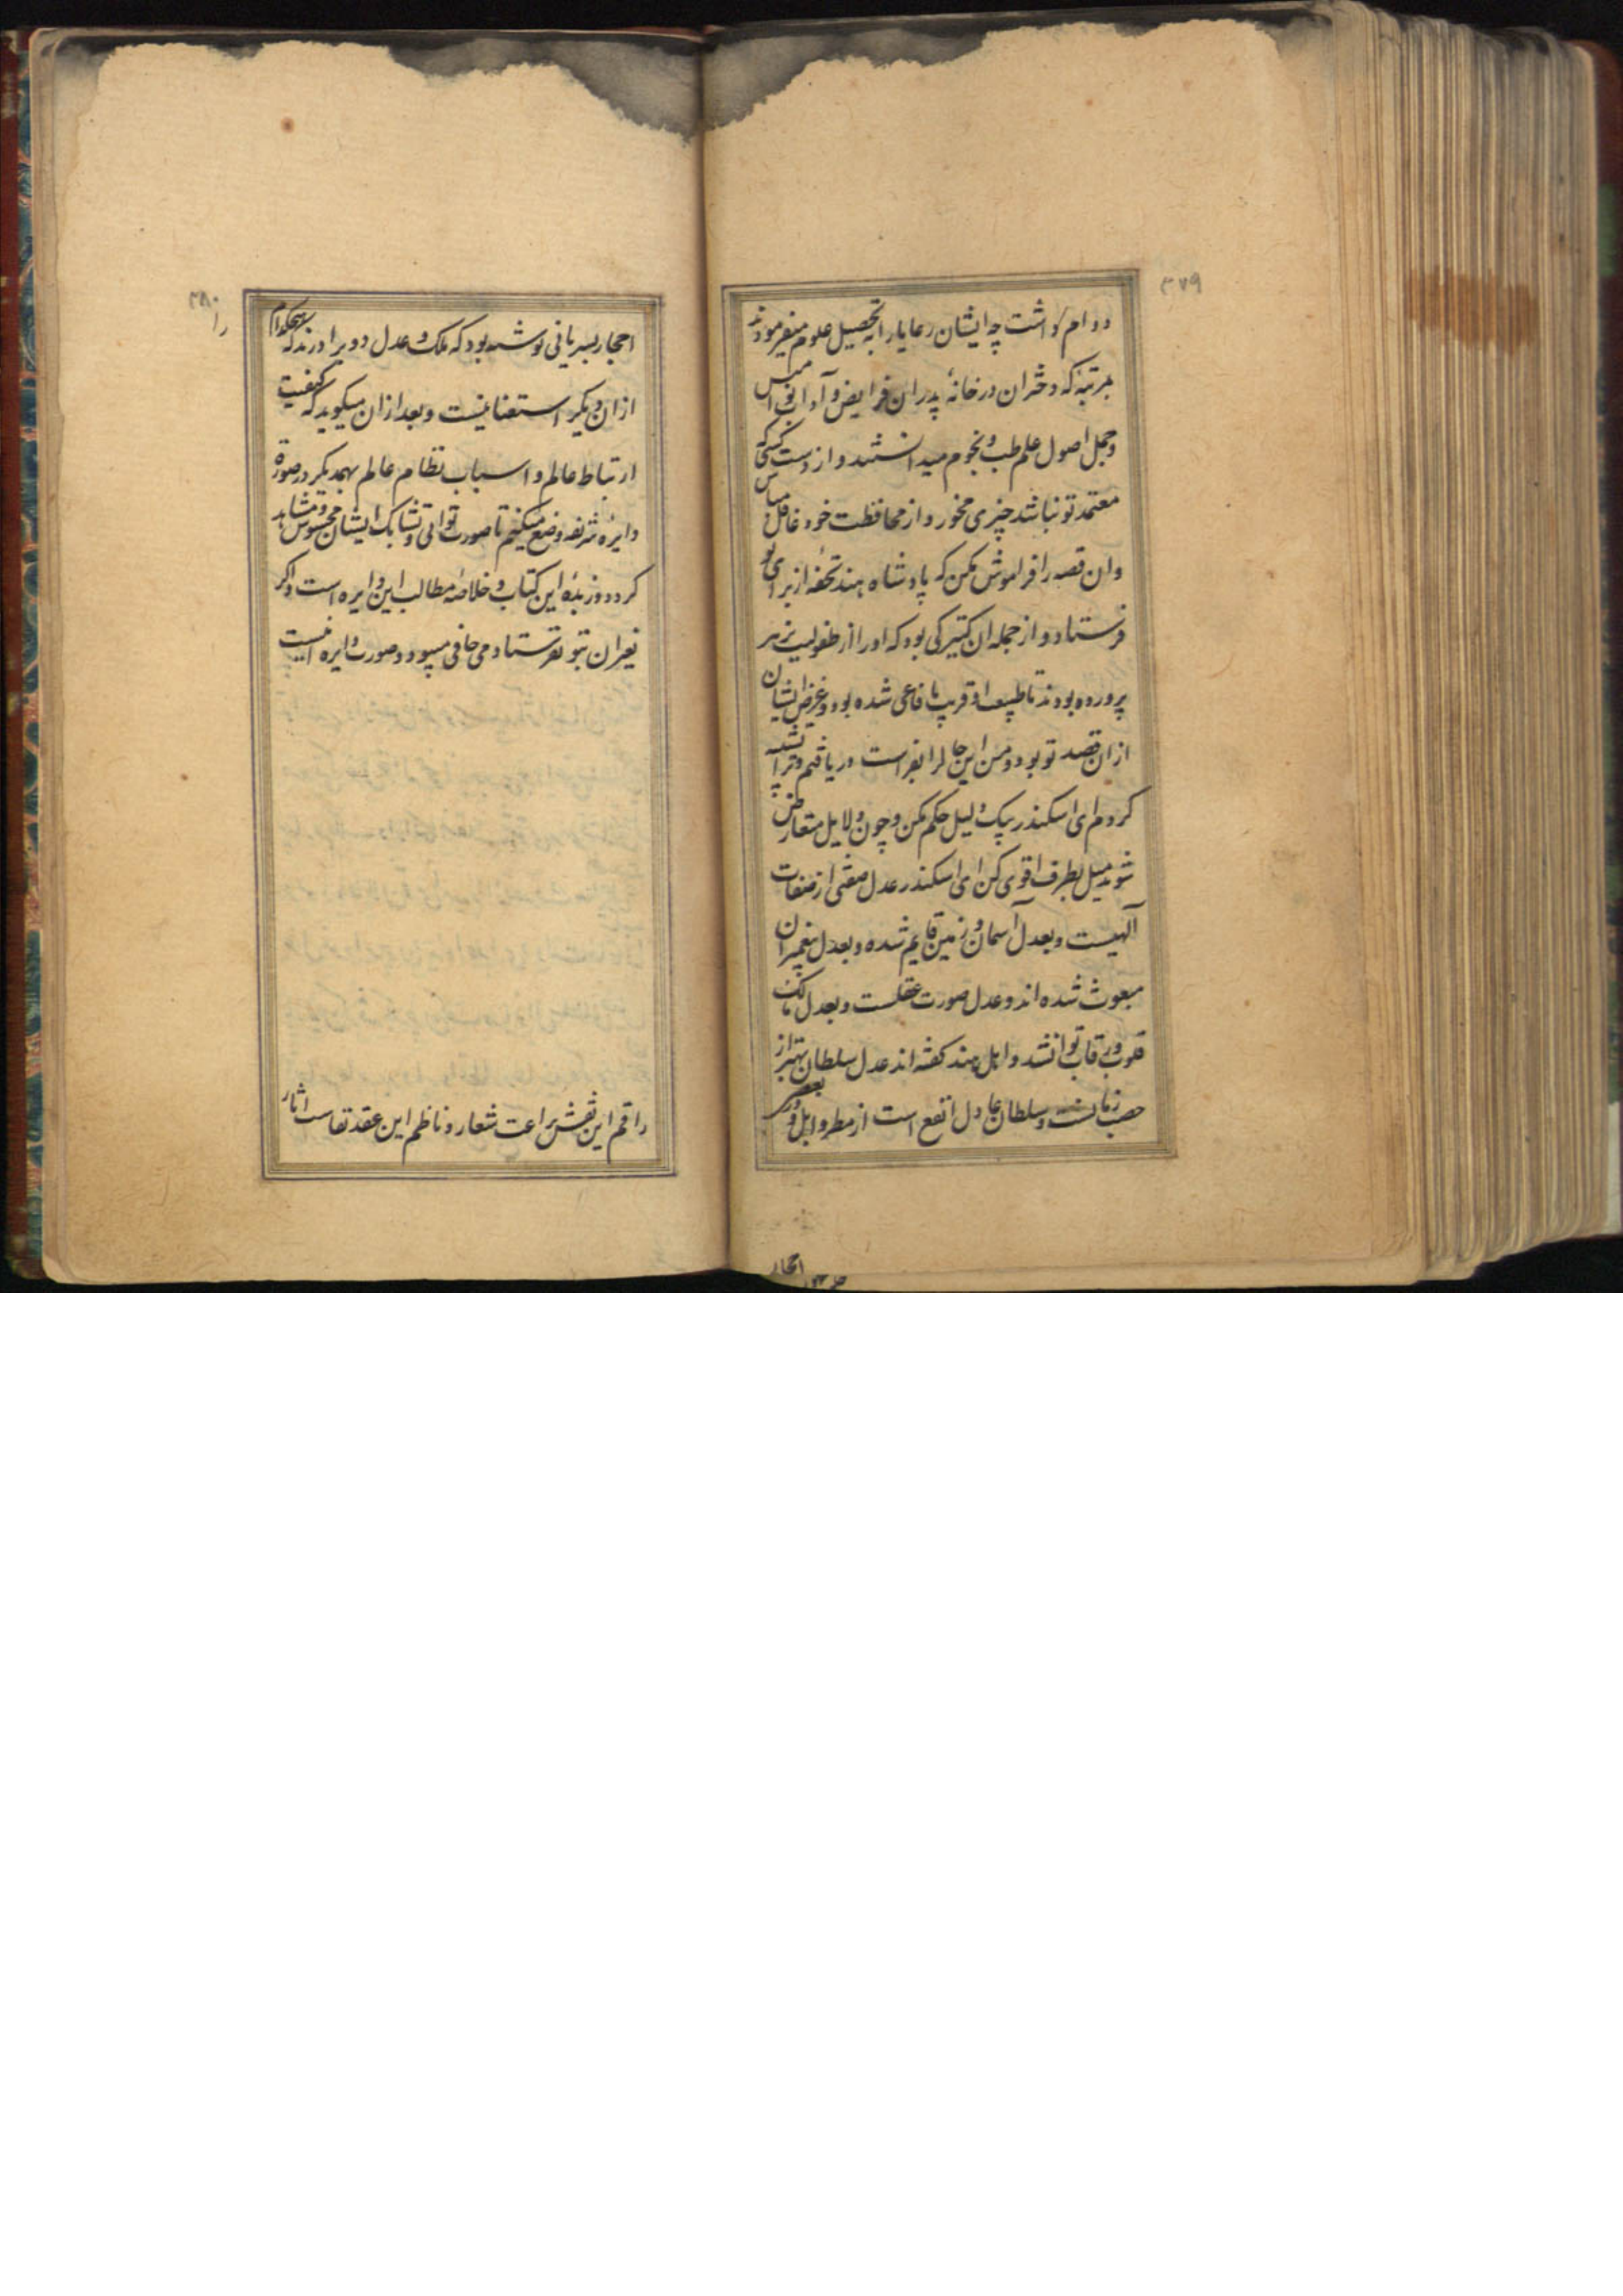 ۳۷۹
دوام داشت چه ایشان رعایا را به تحصیل علوم میفرمودند
بمرتبهٔ که دختران در خانهٔ پدران فرایض و آداب نوامیس
و جمل اصول علم طب و نجوم میدانستند و از دست کسی که
معتمد تو نباشد چیزی مخور و از محافظت خود غافل مباش
وان قصه را فراموش مکن که پادشاه هند تحفه از برای تو
فرستاد و از جمله ان کنیزکی بود که او را از طفولیت بزهر
پرورده بودند تا طبیعت او قریب با فاعی شده بود و غرض ایشان
ازان قصد تو بود و من این حال را بفراست دریافتم و ترا تنبیه
کردم ای اسکندر بیک دلیل حکم مکن و چون دلایل متعارض
شوند میل بطرف اقوی کن ای اسکندر عدل صفتی از صفات
آلهیست و بعدل آسمان و زمین قایم شده و بعدل پیغمبران
مبعوث شده اند و عدل صورت عقلست و بعدل مالک
قلوب و رقاب توان شد و اهل هند گفته اند عدل سلطان بهتر از
خصب زمانست و سلطان عادل انفع است از مطر وابل و در بعضی
احجار
۳۸۰
را
احجار بسریانی نوشته بود که ملک و عدل دو برادرند که هیچکدام
ازان دیگر استغنا نیست و بعد ازان میگوید که کیفیت
ارتباط عالم و اسباب نظام عالم بهمدیگر در صورة
دایرهٔ شریفه وضع میکنیم تا صورت توالی و تشابک ایشان محسوس و مشاهد
گردد و زبدهٔ این کتاب و خلاصهٔ مطالب این دایره است و اگر
غیر ان بتو نفرستادمی کافی میبود و صورت دایره اینست
راقم این نقش براعت شعار و ناظم این عقد نفاست اثار